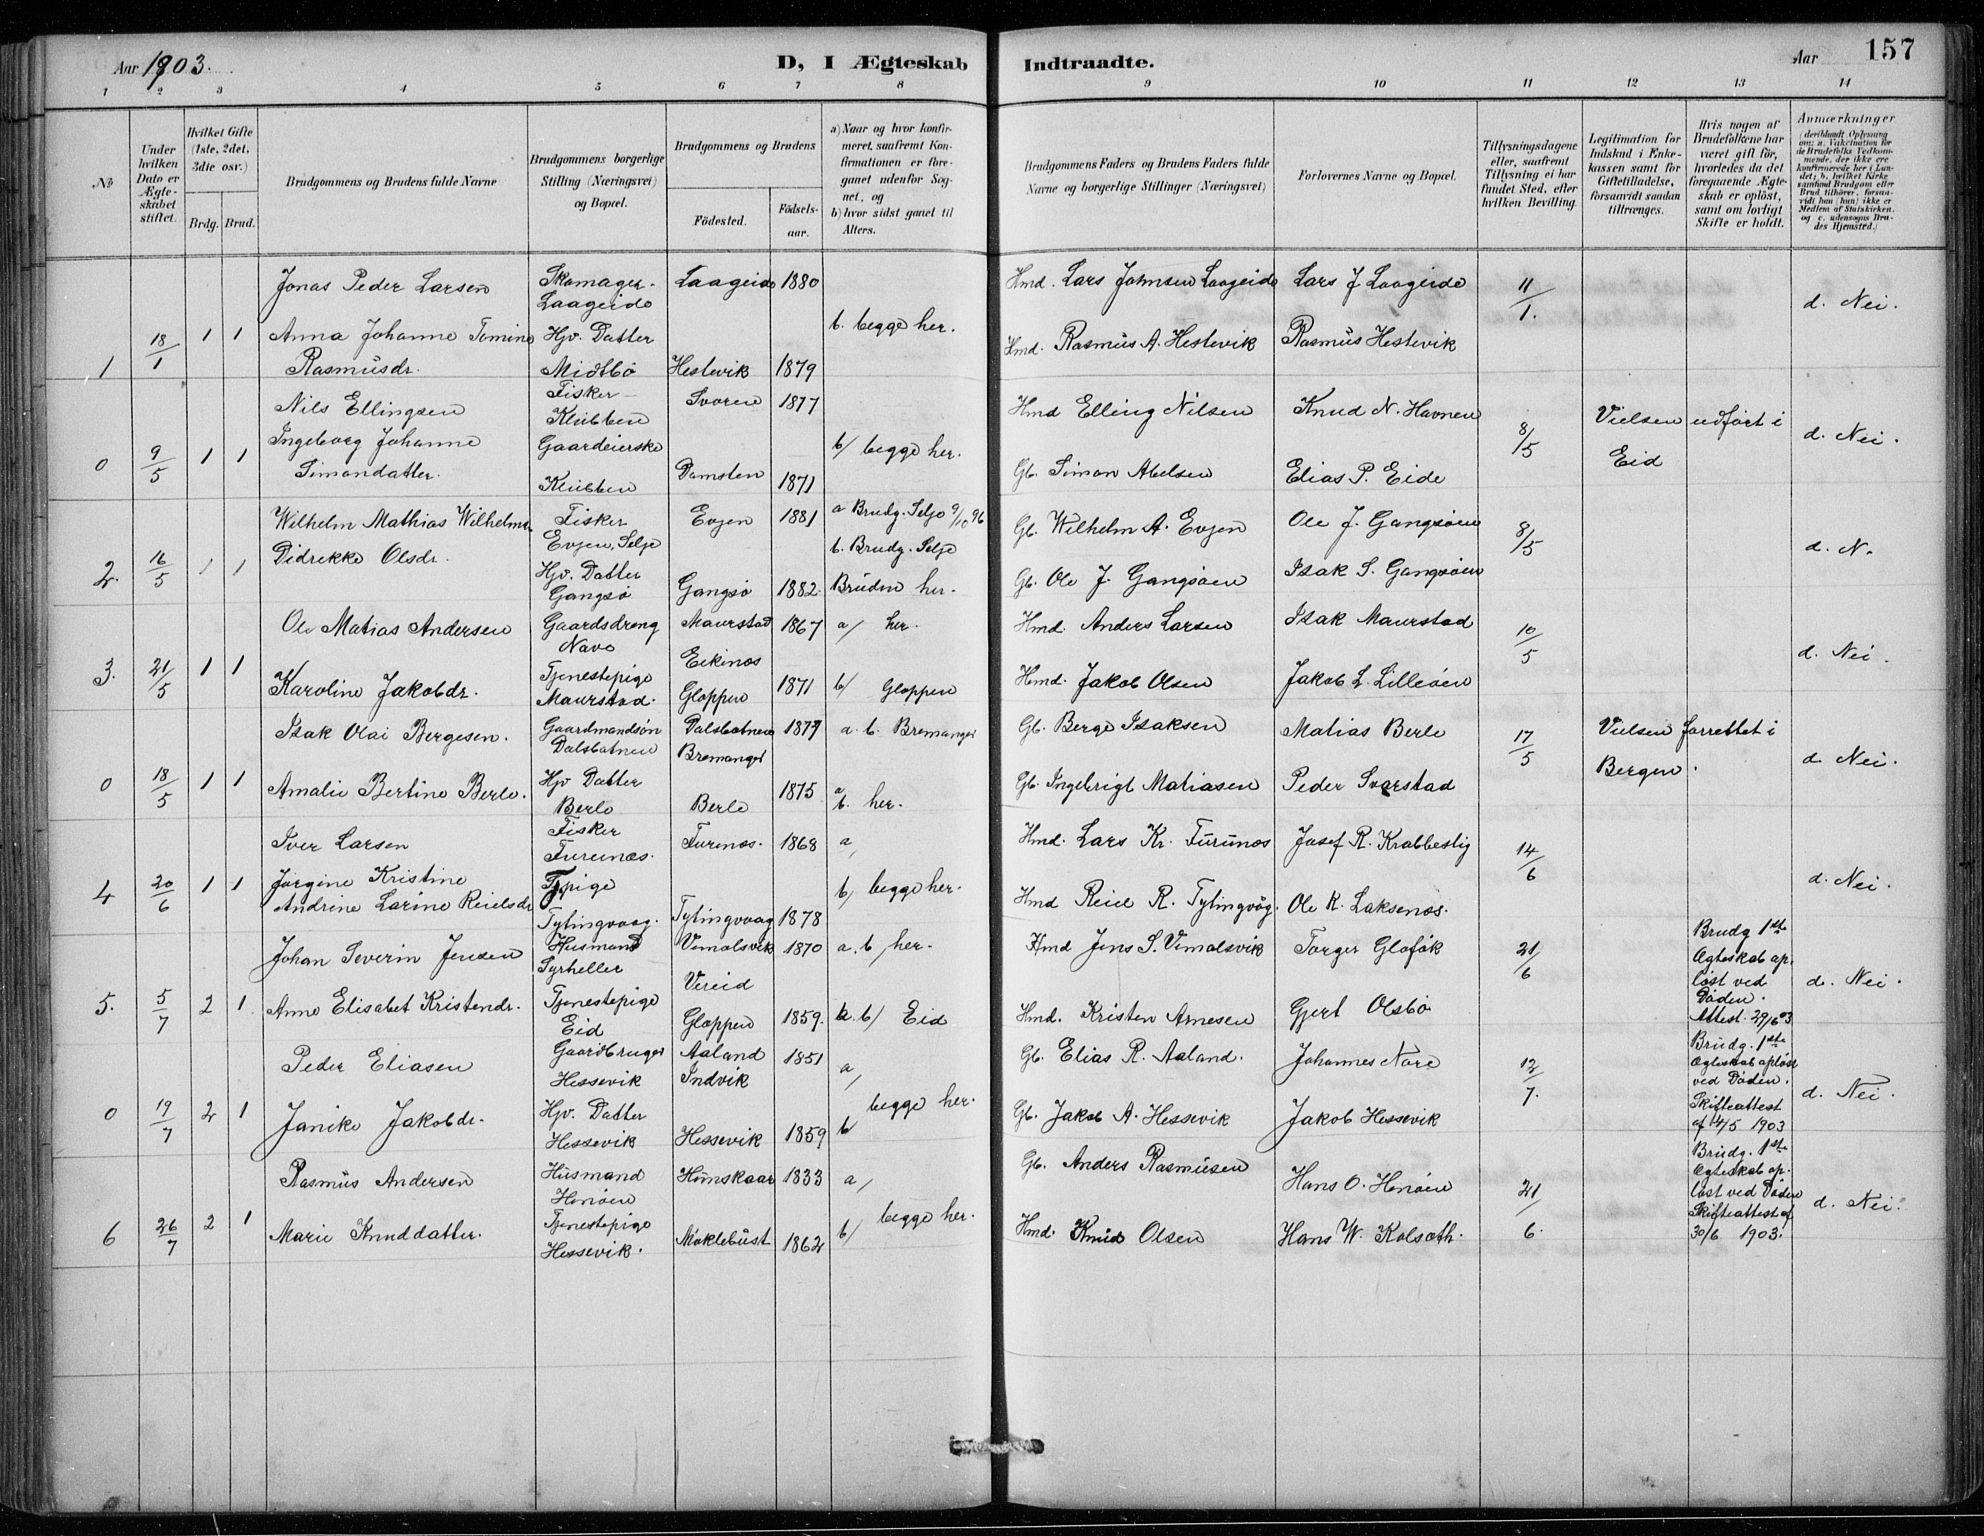 Aar 1903. D, I Ægteskab Indtraadte. Aar 157
1 2 3 4 5 6 7 8 9 10 11 12 13 14
No
Under hvilken Dato er Ægteskabet stiftet.
Hvilket Gifte (1ste, 2det, 3die osv.)
Brdg. Brud.
Brudgommens og Brudens fulde Navne
Brudgommens borgerlige Stilling (Næringsvei) og Bopæl.
Brudgommens og Brudens
Födested. Födsels-aar.
a) Naar og hvor konfirmeret, saafremt Konfirmationen er foregaaet udenfor Sognet, og
b) hvor sidst gaaet til Alters.
Brudgommens Faders og Brudens Faders fulde Navne og borgerlige Stillinger (Næringsvei)
Forlovernes Navne og Bopæl.
Tillysningsdagene eller, saafremt Tillysning ei har fundet Sted, efter hvilken Bevilling.
Legitimation for Indskud i Enkekassen samt for Giftetilladelse, forsaavidt saadan tiltrænges.
Hvis nogen af Brudefolkene har været gift för, hvorledes da det foregaaende Ægteskab er oplöst, samt om lovligt Skifte er holdt.
Anmærkninger (deriblandt Oplysning om: a. Vakcination for de Brudefolks Vedkommende, der ikke ere konfirmerede her i Landet; b. hvilket Kirkesamfund Brudgom eller Brud tilhörer, forsaavidt han (hun) ikke er Medlem af Statskirken, og c. udensogns Brudes Hjemsted.)
Jonas Peder Larsen Skomager. Laageide Laageide 1880 Hmd. Lars Johnsen Laageide Lars J Laageide 11/1. d. Nei.
1 18/1 1 1 Anna Johanne Tomine Rasmusdr. Hjv. Datter Midtbö Hestevik 1879 b. begge her. Hmd. Rasmus A. Hestevik Rasmus Hestevik
Nils Ellingsen Fisker Klubben Svoren 1877 Hmd Elling Nilsen Knud N. Havnen 8/5 Vielsen udfört i Eid d. Nei.
0 9/5 1 1 Ingeborg Johanne Simondatter. Gaardeierske Klubben Domsten 1871 b/ begge her. Gb. Simon Abelsen Elias P. Eide
Wilhelm Mathias Wilhelms Fisker Evjen, Selje Evjen 1881 a Brudg. Selje 9/10 96 Gb. Wilhelm A. Evjen Ole J. Gangsöen 8/5 d. N.
2. 16/5 1 1 Didrekke Olsdr. Hjv. Datter Gangsö Gangsö 1882. b. Brudg. Selje Bruden her. Gb. Ole J. Gangsöen Isak S. Gangsöen
Ole Matias Andersen Gaardsdreng Nave Maurstad 1867 a/ her. Hmd. Anders Larsen Isak Maurstad 10/5 d. Nei.
3. 21/5 1 1 Karoline Jakobdr. Tjenestepige Maurstad. Eikinæs Gloppen 1871 b/ Gloppen Hmd. Jakob Olsen Jakob L. Lilleöen
Isak Olai Bergesen. Gaardmandsön Dalsbotnen Dalsbotnen Bremanger 1877 a. b. Bremanger Gb. Berge Isaksen Matias Berle 17/5 Vielsen forrettet i Bergen. d. Nei.
0 18/5 1 1 Amalie Bertine Berle. Hjv Datter Berle Berle 1875 a b. her. Gb. Ingebrigt Matiasen Peder Svarstad
Iver Larsen Fisker Furunæs. Furenæs. 1868 a, Hmd. Lars Kr. Furunæs Josef R. Krabbestig 14/6 d. Nei.
4 20/6 1 1 Jorgine Kristine Andrine Larine Reielsdr Tpige Tytingvaag. Tytingvaag 1878 b/ begge her. Hmd Reiel R. Tytingvåg. Ole K. Laksenæs.
Johan Severin Jensen Husmand Syrheller Vemelsvik 1870 a. b, her. Hmd Jens S. Vemelsvik Torger Glofåk 21/6 Brudg 1ste Ægteskab opløst ved Döden. Attest 29/6 03 d. Nei.
5. 5/7 2 1. Anne Elisabet Kristendr. Tjenestepige Eid Vereid Gloppen 1859. a. b/ Eid Hmd. Kristen Arnesen Gjert Olsbö
Peder Eliasen Gaardbruger Hessevik Aaland Indvik 1851 a, Gb. Elias R. Aaland. Johannes Nore 12/7. Brudg. 1ste Ægteskab oplöst ved Döden. Skifteattest af 14/5 1903 d. Nei.
0 19/7 2 1 Janike Jakobdr. Hjv. Datter Hessevik Hessevik 1859 b/ begge her. Gb. Jakob A. Hessevik Jakob Hessevik
Rasmus Andersen Husmand Henöen Hunskaar 1833 a, Gb. Anders Rasmusen Hans O. Henöen 21/6. Brudg. 1st Ægteskab oplöst ved Döden Skifteattest af 30/6 1903. d. Nei.
6 26/7 2 1 Marie Knuddatter. Tjenestepige Hessevik. Moklebust 1862 b/ begge her. Hmd. Knud Olsen Hans W. Kolseth.